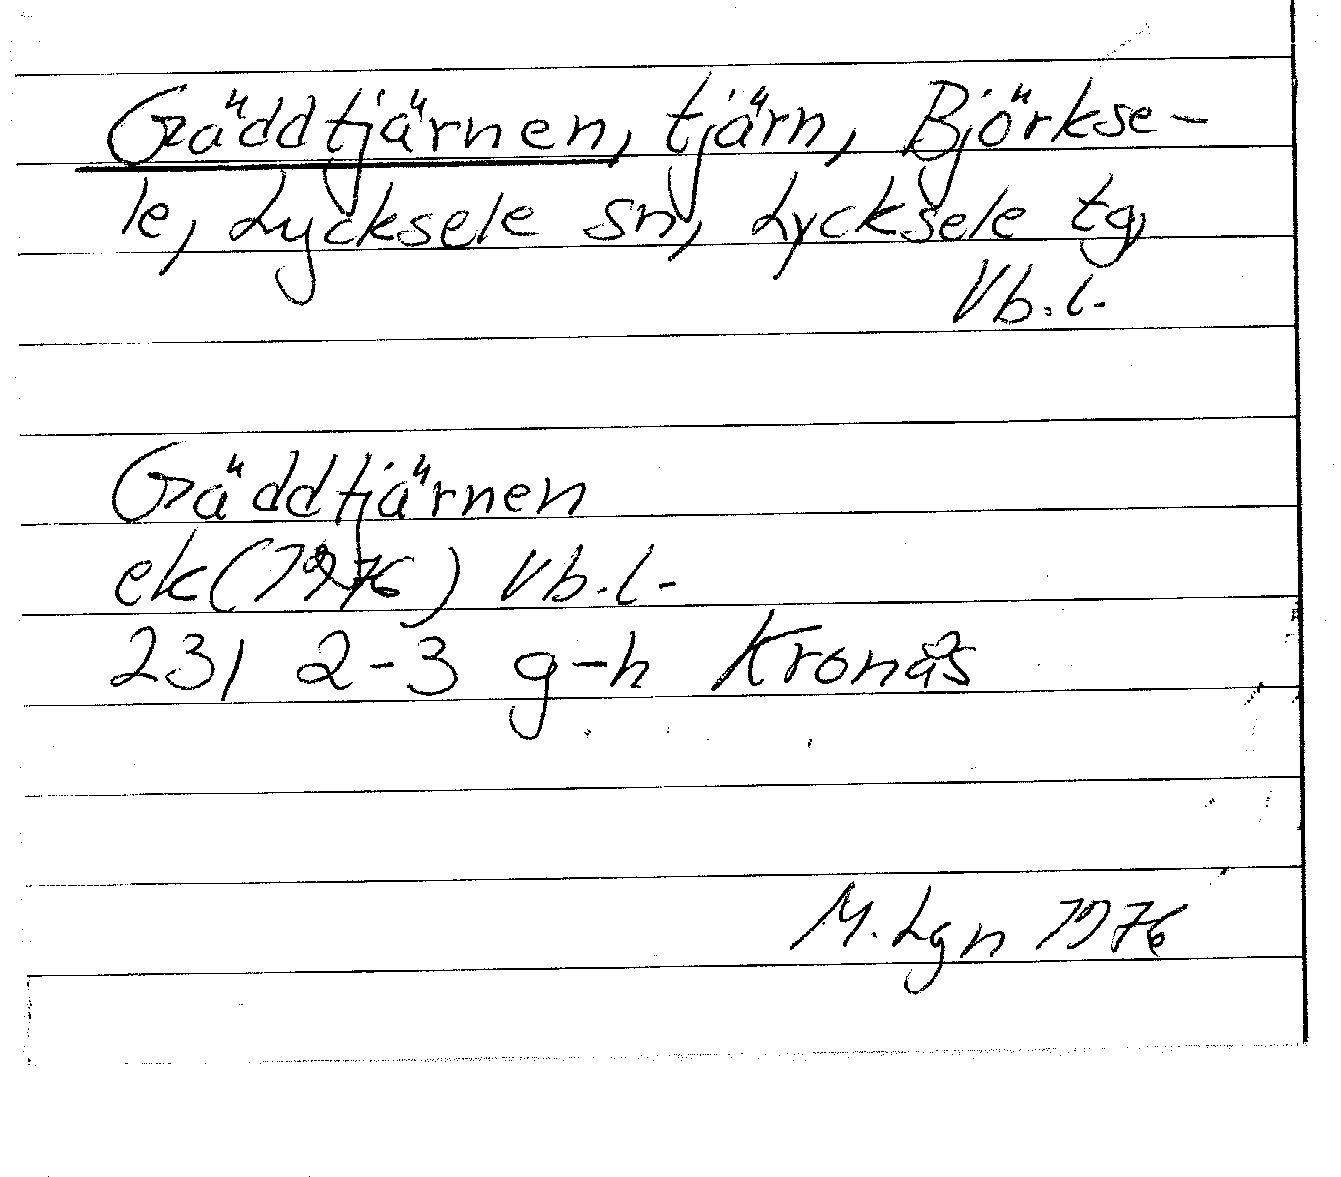 Gäddtjärnen, tjärn, Björkse-
le, Lycksele sn, Lycksele tg,
Vb.l.
Gäddtjärnen
ek(1976) Vb.l.
23I 2-3 g-h Kronås
M.Lgn 1976